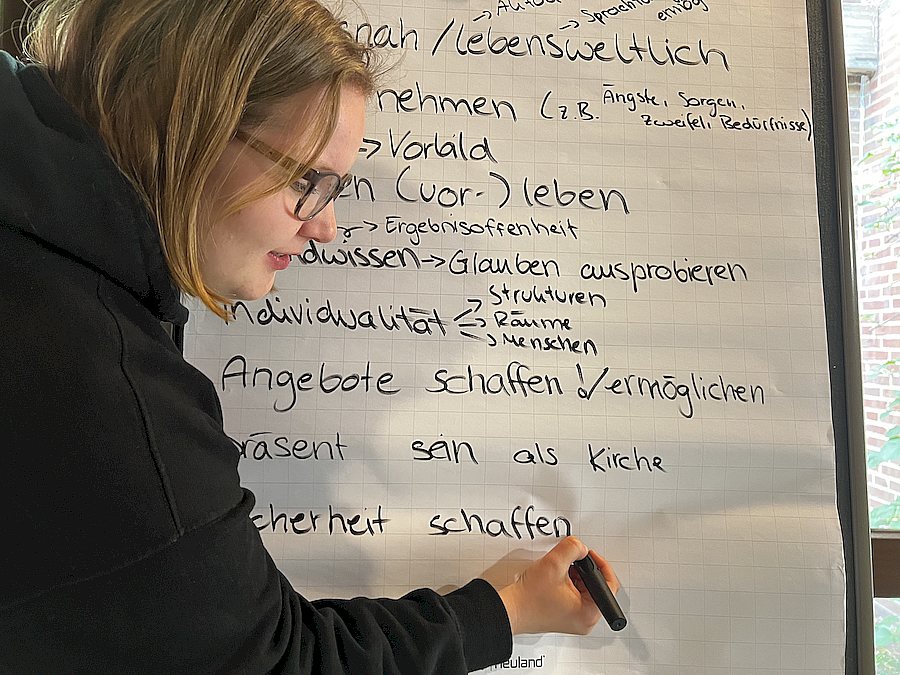 → Sprach
nah / lebensweltlich
nehmen (z.B. Ängste, Sorgen,
Zweifel, Bedürfnisse)
→ Vorbild
en (vor-) leben
→ Ergebnisoffenheit
dwissen → Glauben ausprobieren
→ Strukturen
Individualität → Räume
→ Menschen
Angebote schaffen!/ermöglichen
präsent sein als Kirche
cherheit schaffen
neuland